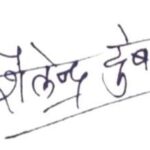 शैलेन्द्र दुबे